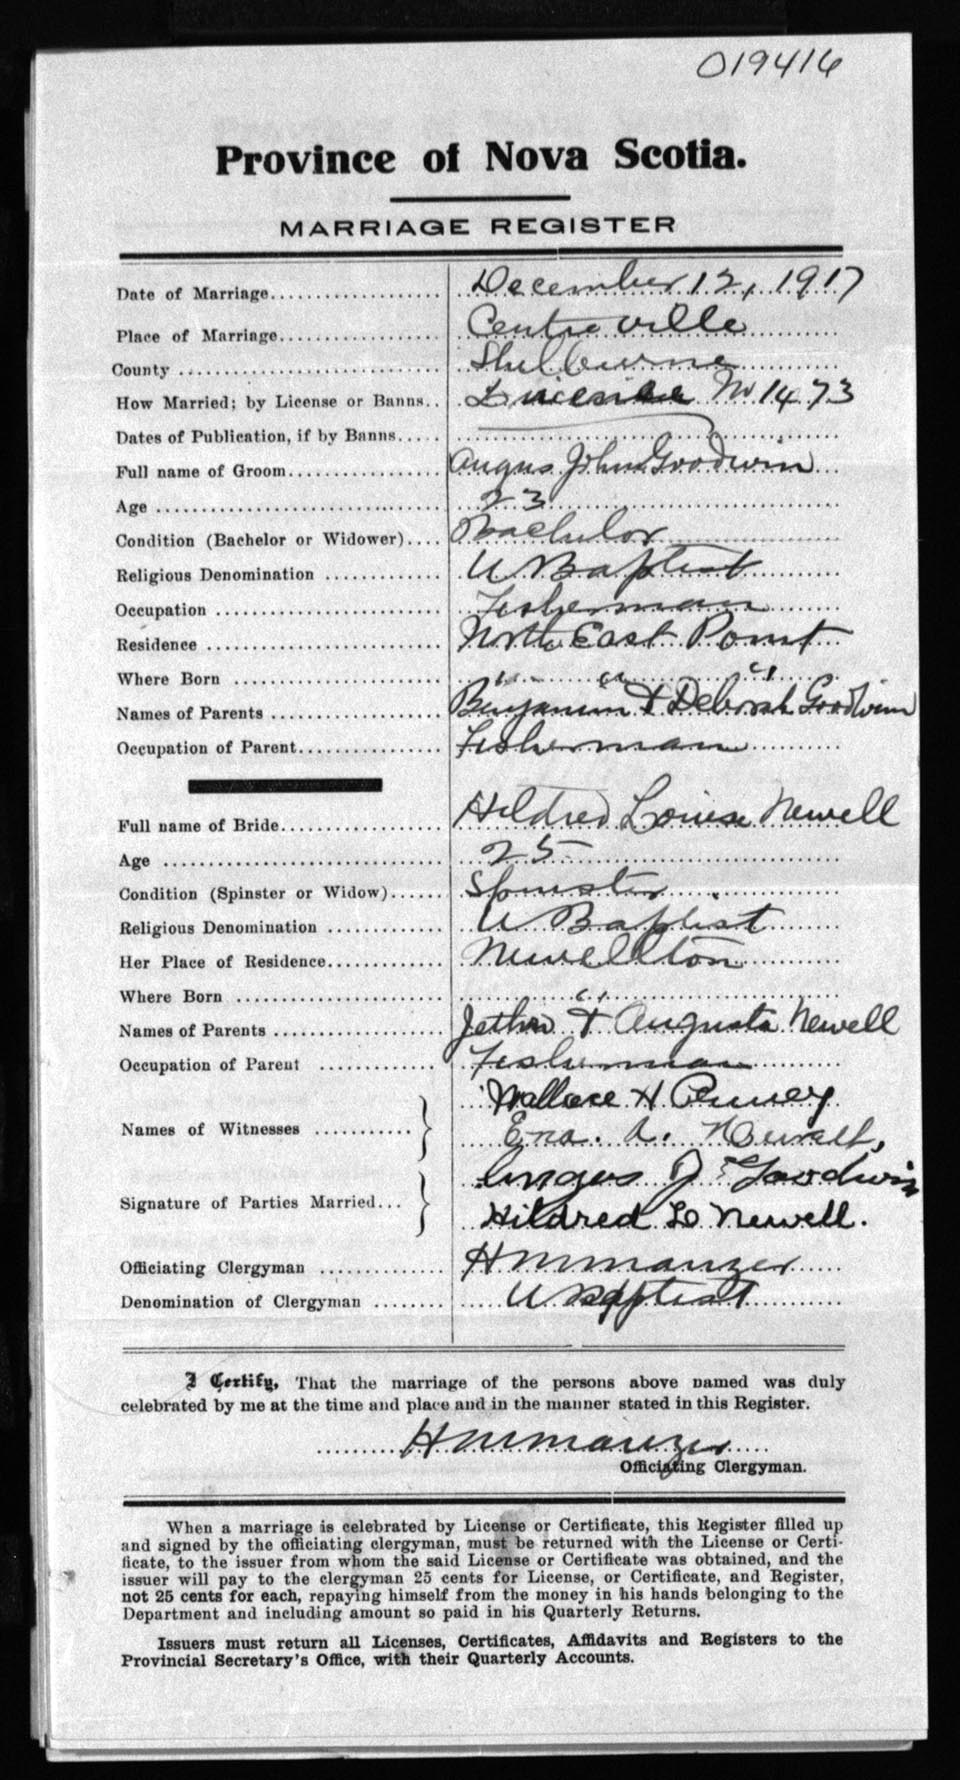 019416
Province of Nova Scotia.
MARRIAGE REGISTER
Date of Marriage.................... December 12, 1917
Place of Marriage.................. Centreville
County ............................. Shelburne
How Married; by License or Banns.. License No 1473
Dates of Publication, if by Banns.....
Full name of Groom................. Angus John Goodwin
Age ................................ 23
Condition (Bachelor or Widower).... Bachelor
Religious Denomination ............. U Baptist
Occupation ......................... Fisherman
Residence .......................... North East Point
Where Born ........................ " " "
Names of Parents ................... Benjamin & Deborah Goodwin
Occupation of Parent................ Fisherman
Full name of Bride.................. Hildred Louise Newell
Age ................................ 25
Condition (Spinster or Widow)...... Spinster
Religious Denomination ............. U Baptist
Her Place of Residence............. Newellton
Where Born ........................ "
Names of Parents ................... Jethro & Augusta Newell
Occupation of Parent .............. Fisherman
Names of Witnesses ........... Wallace H Penney
A. Newell,
Signature of Parties Married... Angus J Goodwin
Hildred L Newell.
Officiating Clergyman .............. H M Manzer
Denomination of Clergyman ........ U Baptist
I Certify, That the marriage of the persons above named was duly
celebrated by me at the time and place and in the manner stated in this Register.
H M Manzer
Officiating Clergyman.
When a marriage is celebrated by License or Certificate, this Register filled up
and signed by the officiating clergyman, must be returned with the License or Certi-
ficate, to the issuer from whom the said License or Certificate was obtained, and the
issuer will pay to the clergyman 25 cents for License, or Certificate, and Register,
not 25 cents for each, repaying himself from the money in his hands belonging to the
Department and including amount so paid in his Quarterly Returns.
Issuers must return all Licenses, Certificates, Affidavits and Registers to the
Provincial Secretary's Office, with their Quarterly Accounts.